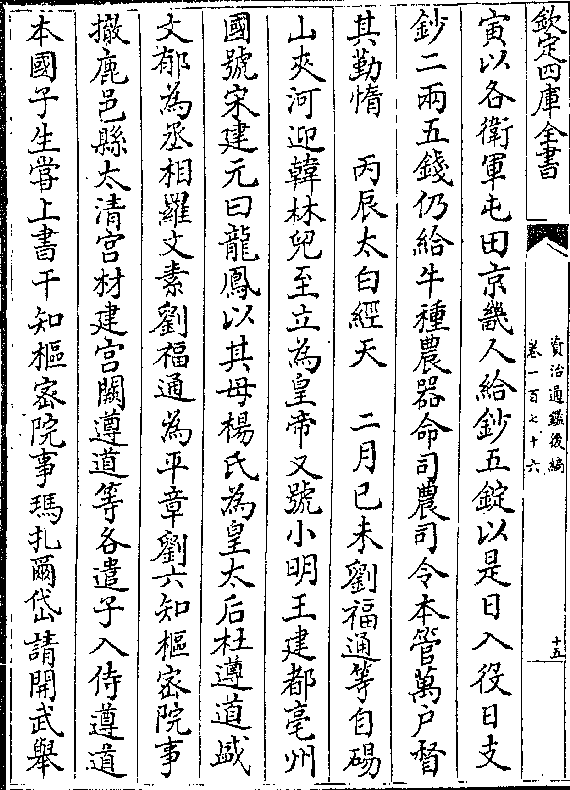 欽定四庫全書
資治通鑑後編
卷一百七十六
十五
寅以各衛軍屯田京畿人給鈔五錠以是日入役日支
鈔二兩五錢仍給牛種農器命司農司令本管萬户督
其勤惰　丙辰太白經天　二月己未劉福通等自碭
山夾河迎韓林兒至立為皇帝又號小明王建都亳州
國號宋建元曰龍鳳以其母楊氏為皇太后杜遵道盛
文郁為丞相羅文素劉福通為平章劉六知樞密院事
撤鹿邑縣太清宫材建宫闕遵道等各遣子入侍遵道
本國子生嘗上書干知樞密院事瑪扎爾岱請開武舉